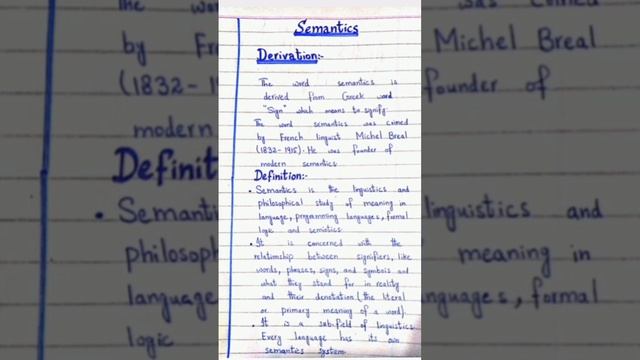 Semantics
Derivation:-
The word semantics is
derived from Greek word
"Sign" which means to signify.
The word semantics was coined
by French linguist Michel Breal
(1832-1915). He was founder of
modern semantics
Definition:-
• Semantics is the linguistics and
philosophical study of meaning in
language, programming languages, formal
logic and semiotics
• It is concerned with the
relationship between signifiers, like
words, phrases, signs, and symbols and
what they stand for in reality
and their denotation (the literal
or primary meaning of a word).
• It is a subfield of linguistics.
Every language has its own
semantics system.
The wo
was coined
by Fre
Michel Breal
(1832-1
founder of
modern
Definit
• Semant
linguistics and
philosoph
meaning in
language
nguages, formal
logic